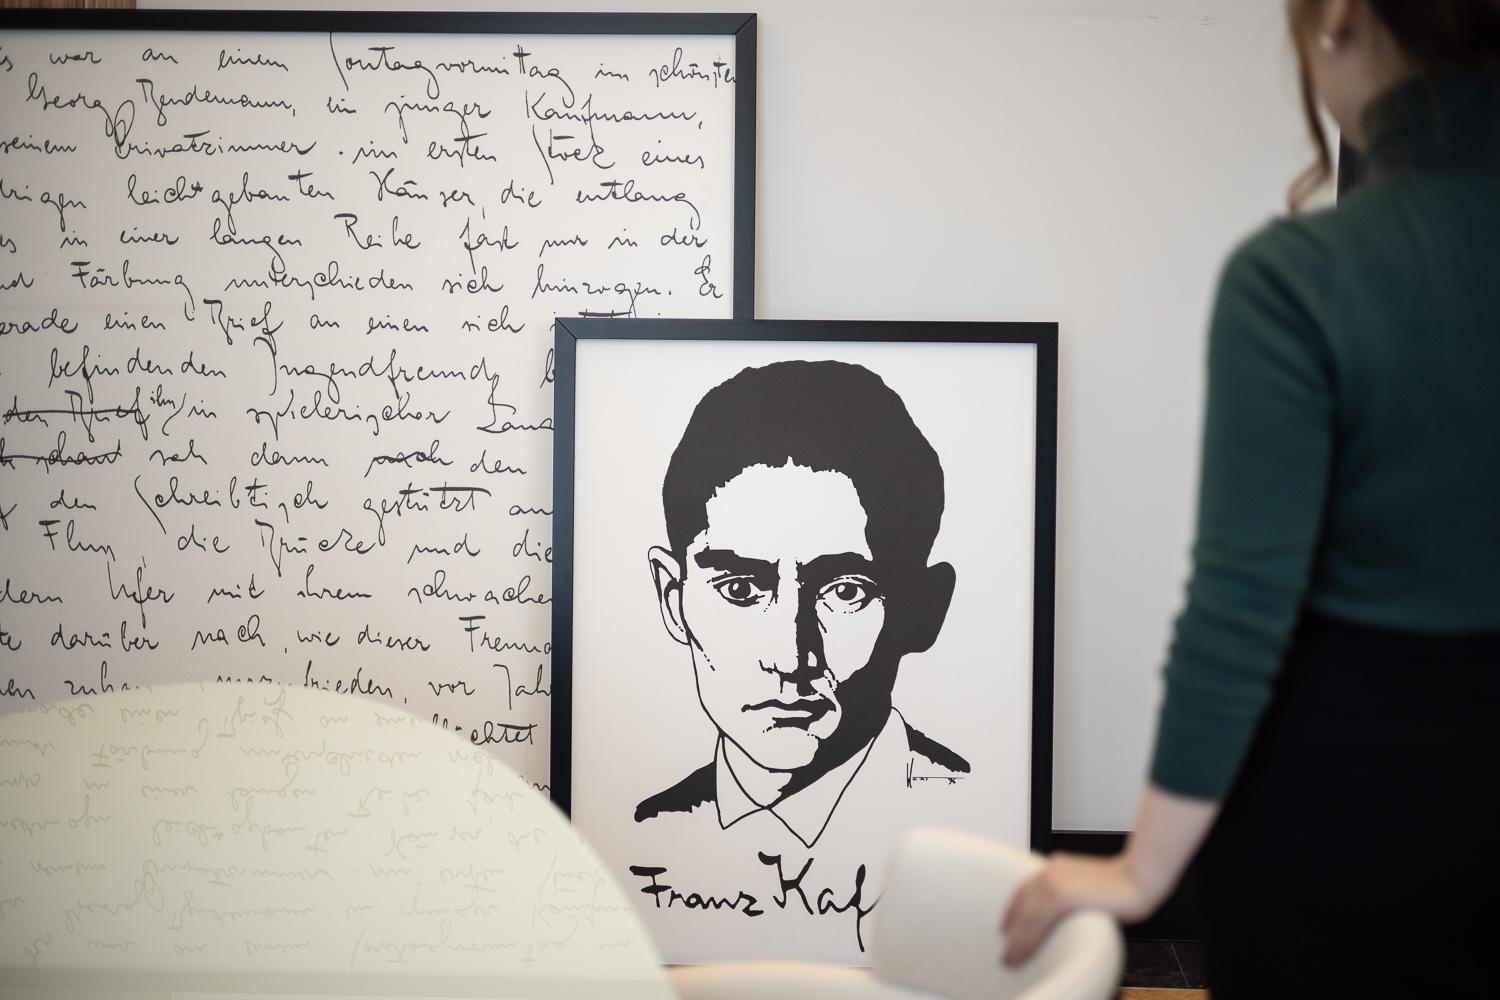 s war an einem Sontagvormittag im schönsten
Georg Bendemann, ein junger Kaufmann,
seinem Privatzimmer im ersten Stock eines
drigen leichtgebauten Häuser, die entlang
es in einer langen Reihe fast nur in der
nd Färbung unterschieden sich hinzogen. Er
erade einen Brief an einen sich
befindenden Jugendfreund b
den Brief ihn in spielerischer Lang
schaut sah dann nach den
f den Schreibtisch gestützt au
Fluß, die Brücke und die
dern Ufer mit ihrem schwachen
te darüber nach, wie dieser Freun
en zuhau unzufrieden, vor Jah
üchtet
Franz Kaf